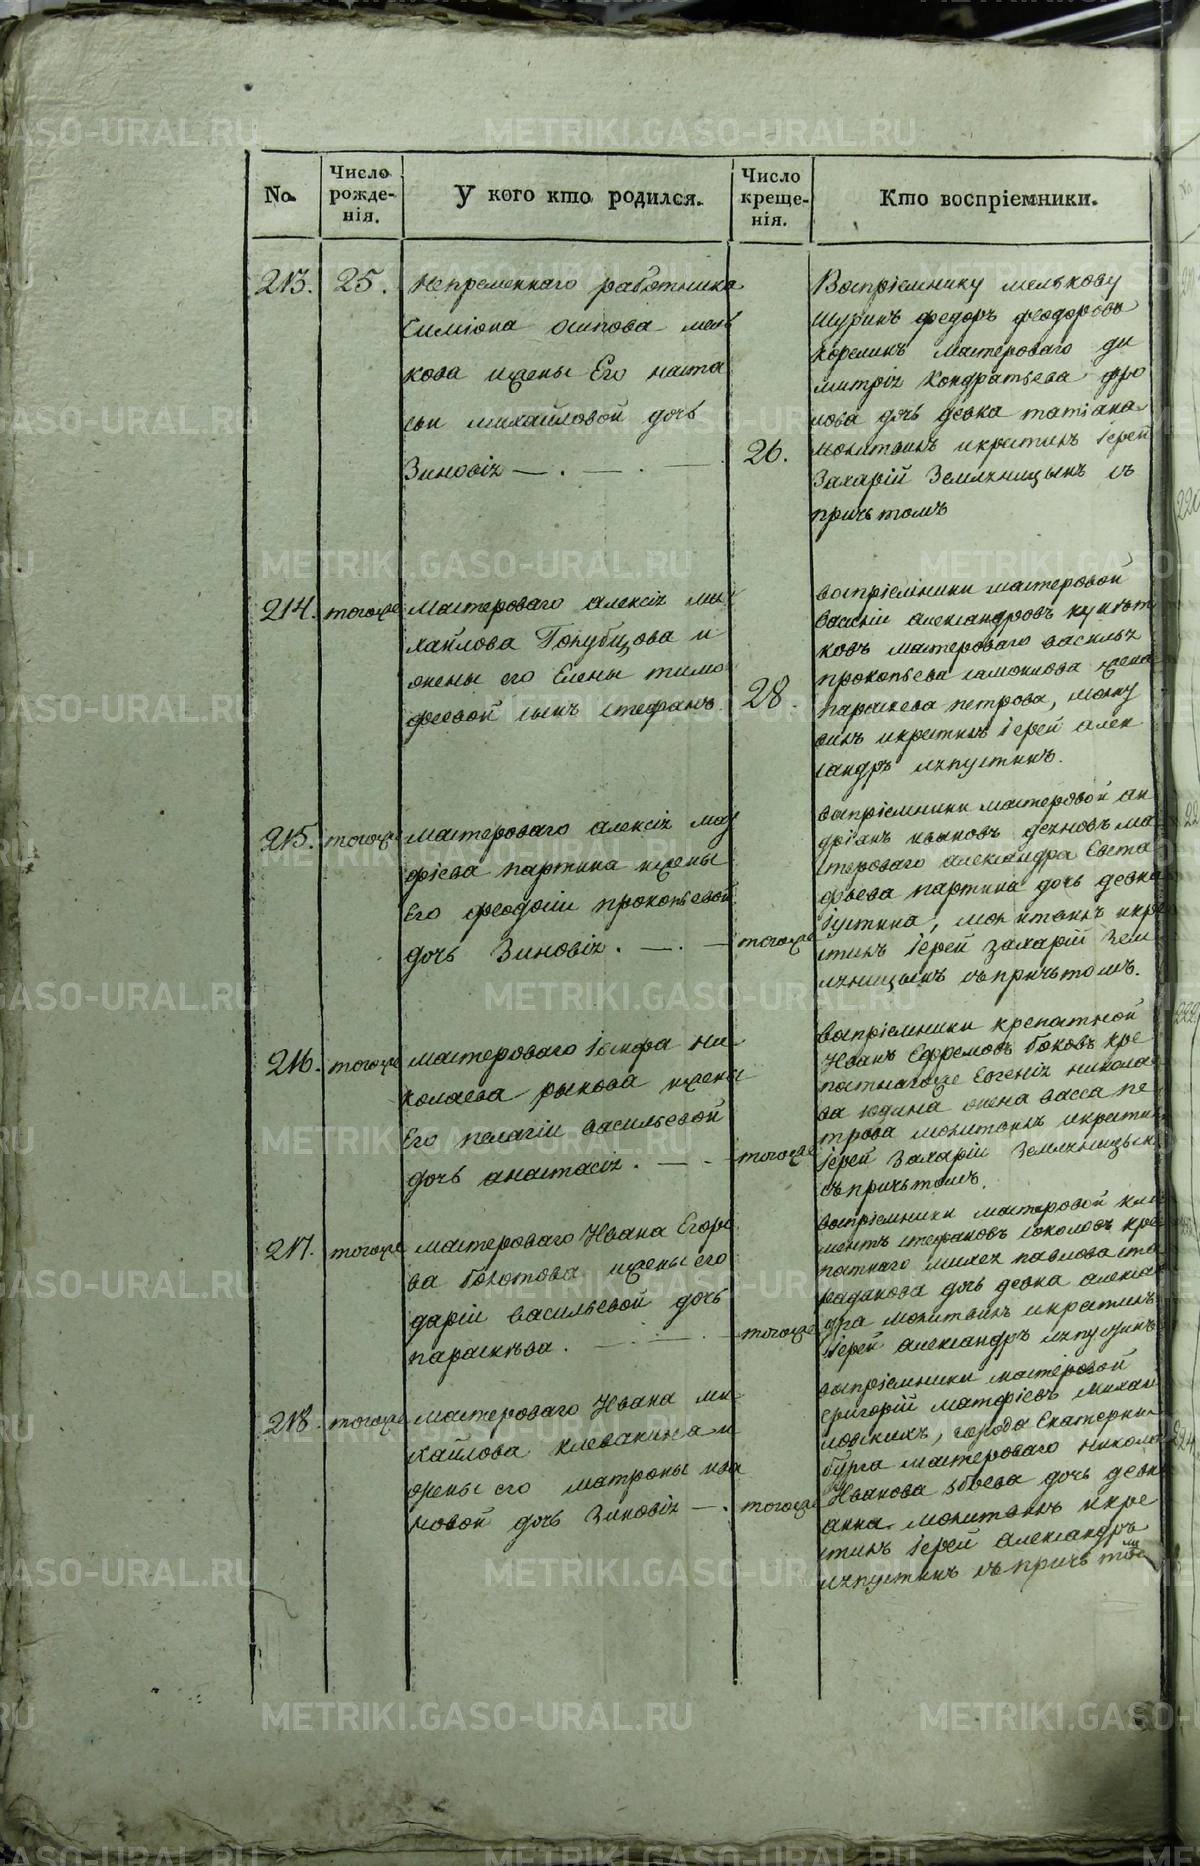 No.
Число рожде-нія.
У кого кто родился.
Число креще-нія.
Кто воспріемники.
213.
25.
Непременнаго работника
Симіона осипова мель
кова ижены Его наста
сьи михайловой дочь
Зиновія
26.
Воспріемнику мелькову
шуринъ федоръ феодоровъ
корелинъ мастероваго ди
митрія кондратьева фро
лова дочь девка татіана
молитвилъ икрестилъ іерей
Захарій Земляницынъ съ
причьтомъ
214.
тогоже
Мастероваго алексія ми
хайлова Голубцова и
жены его Елены тимо
феевой сынъ стефанъ.
28.
воспріемники мастеровой
василій александровъ
ковъ мастероваго василья
прокопьева самоилова жена
параскева петрова, молит
вилъ икрестилъ іерей алек
сандръ ляпустинъ.
215.
тогоже
мастероваго алексія мат
фіева партина ижены
Его феодосіи прокопьевой
дочь Зиновія.
тогоже
воспріемники мастеровой ан
дріанъ ма
стероваго александра Евста
фьева партина дочь девка
іустина, молитвилъ икре
стилъ іерей захарій зем
ляницынъ съпричьтомъ.
216.
тогоже
мастероваго іосифа ни
колаева рыкова ижены
Его пелагіи васильевой
дочь анастасія.
тогоже
воспріемники крепостной
Иванъ Ефремовъ боковъ кре
постнагоже Евгенія никола
ва юдина жена васса пе
трова молитвилъ икрестилъ
іерей Захарій Земляницынъ
съпричьтомъ.
217.
тогоже
мастероваго Ивана Егоро
ва болотова ижены его
даріи васильевой дочь
параскѣва.
тогоже
воспріемники мастеровой кли
ментъ стефановъ соколовъ кре
постнаго михея павлова ста
радакова дочь девка алексан
дра молитвилъ икрестилъ
іерей александръ ляпустинъ
218.
тогоже
мастероваго Ивана ми
хайлова клевакина и
жены его матроны ива
новой дочь Зиновія
тогоже
воспріемники мастеровой
григорій матфіевъ михаи
ловскихъ, города Екатерин
бурга мастероваго николая
Иванова збоева дочь девка
анна. молитвилъ икре
стилъ іерей александръ
ляпустинъ съ причьтомъ
METRIKI.GASO-URAL.RU